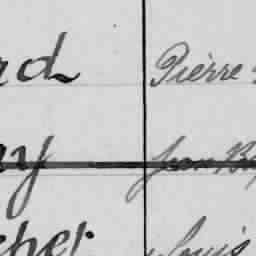 rd Pièrre
ny Jean Ba
cher Louis